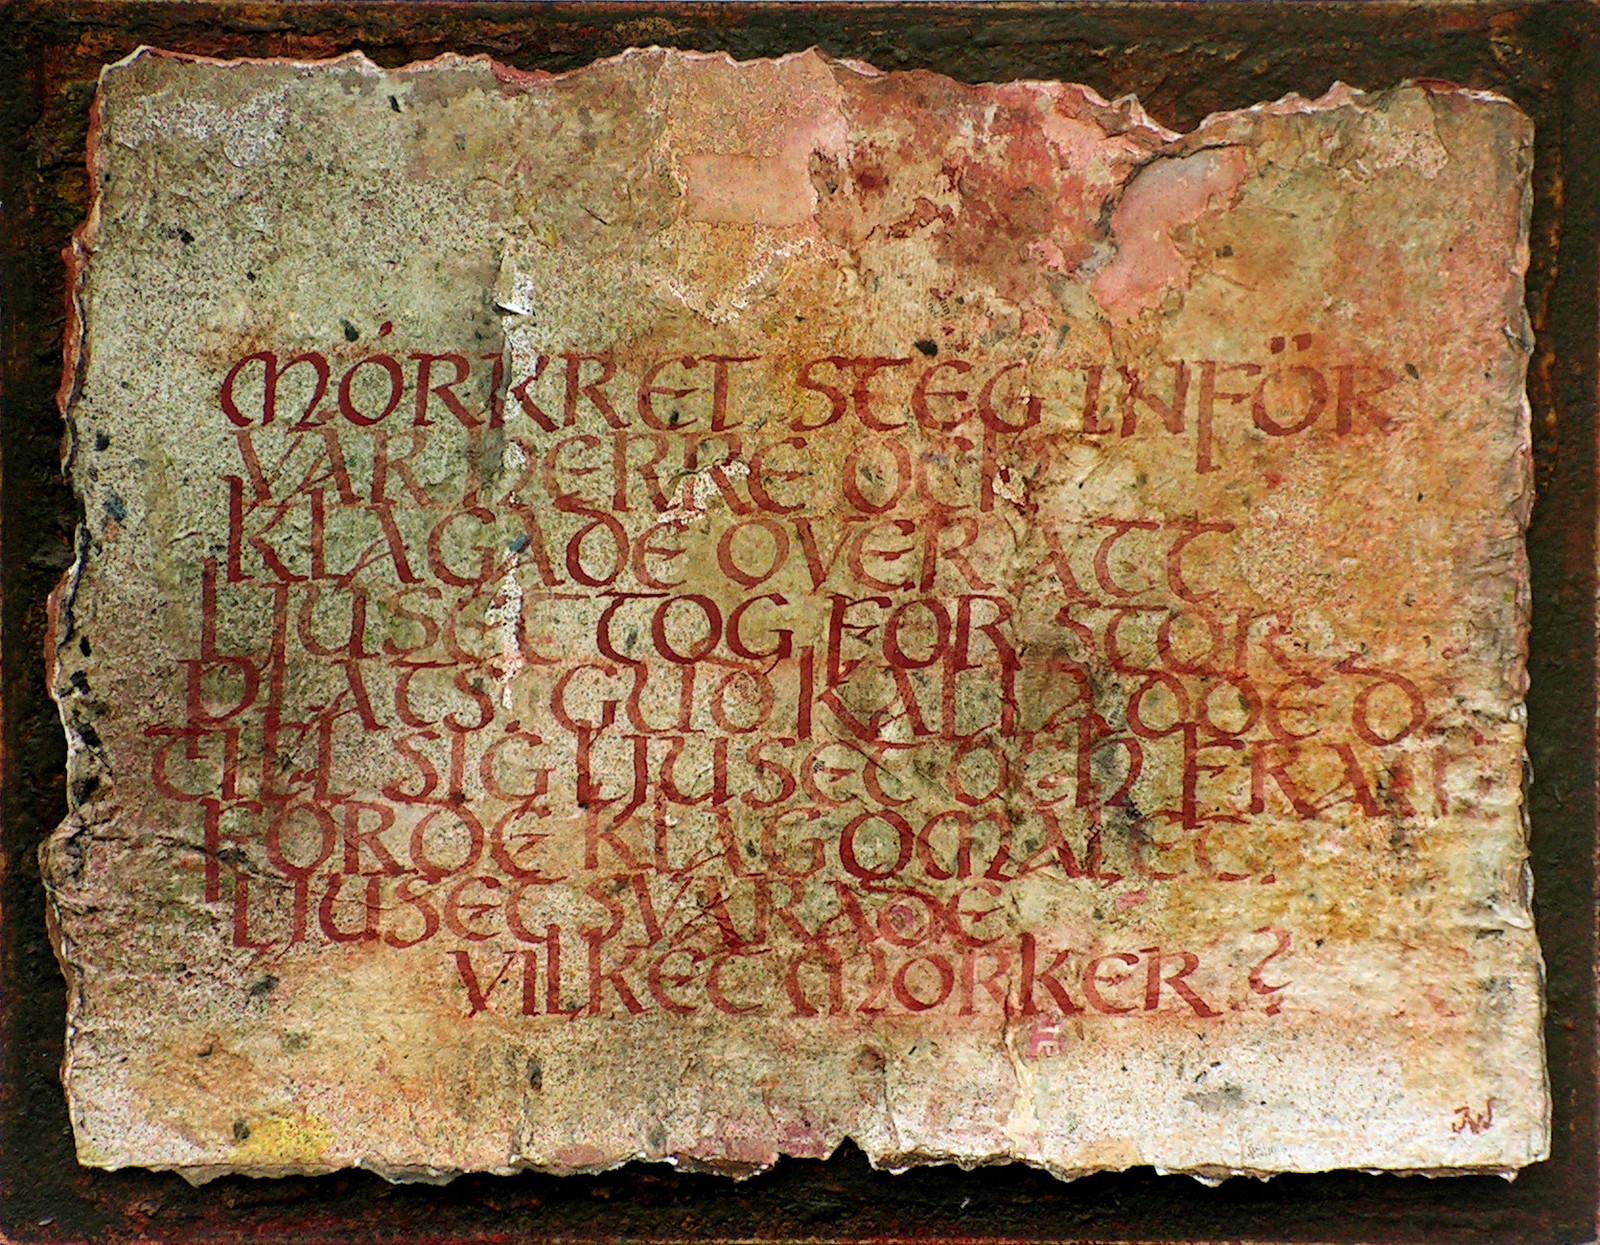 MÓRKRET STEG INFÖR
VAR HERRE OCH
KLAGADE OVER ATT
LJUSET TOG FOR STOR
PLATS. GUD KALLADDE D
TILL SIG LJUSET OCH FRAM
FORDE KLAGOMALET.
LJUSET SVARADE
VILKET MORKER ?
JW